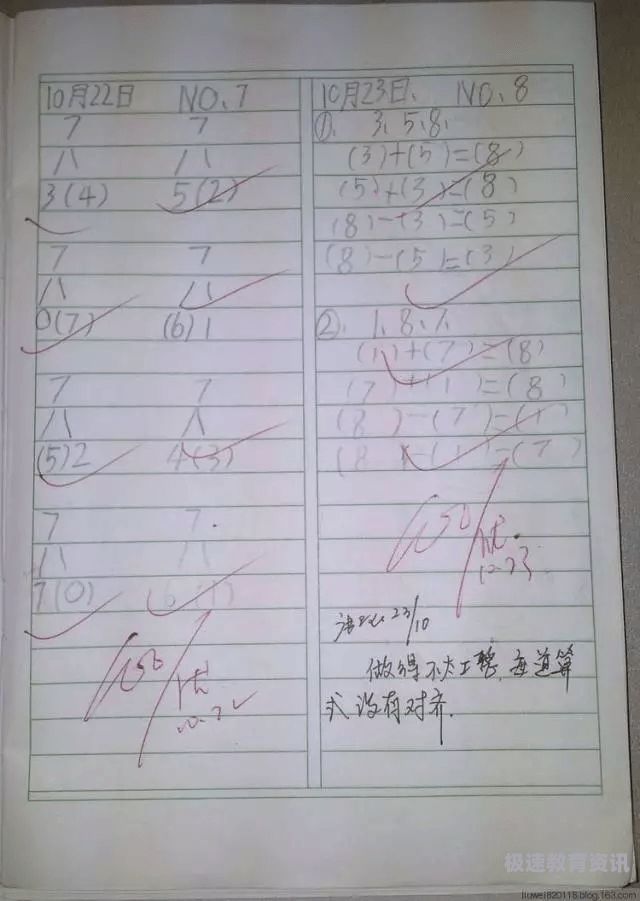 10月22日 NO、7
7 7
八 八
3(4) 5(2)
7 7
八 八
0(7) (6)1
7 7
八 八
(5)2 4(3)
7 7
八 八
7(0) 6(1)
优
10.22
10月23日、 NO、8
①、 3、5、8、
(3)+(5)=(8)
(5)+(3)=(8)
(8)-(3)=(5)
(8)-(5)=(3)
②、 1、8、7、
(1)+(7)=(8)
(7)+(1)=(8)
(8)-(7)=(1)
(8)-(1)=(7)
优
10.23
23/10
做得不太工整,每道算
式没有对齐.
极速教育资讯
liuwei820118.blog.163.com